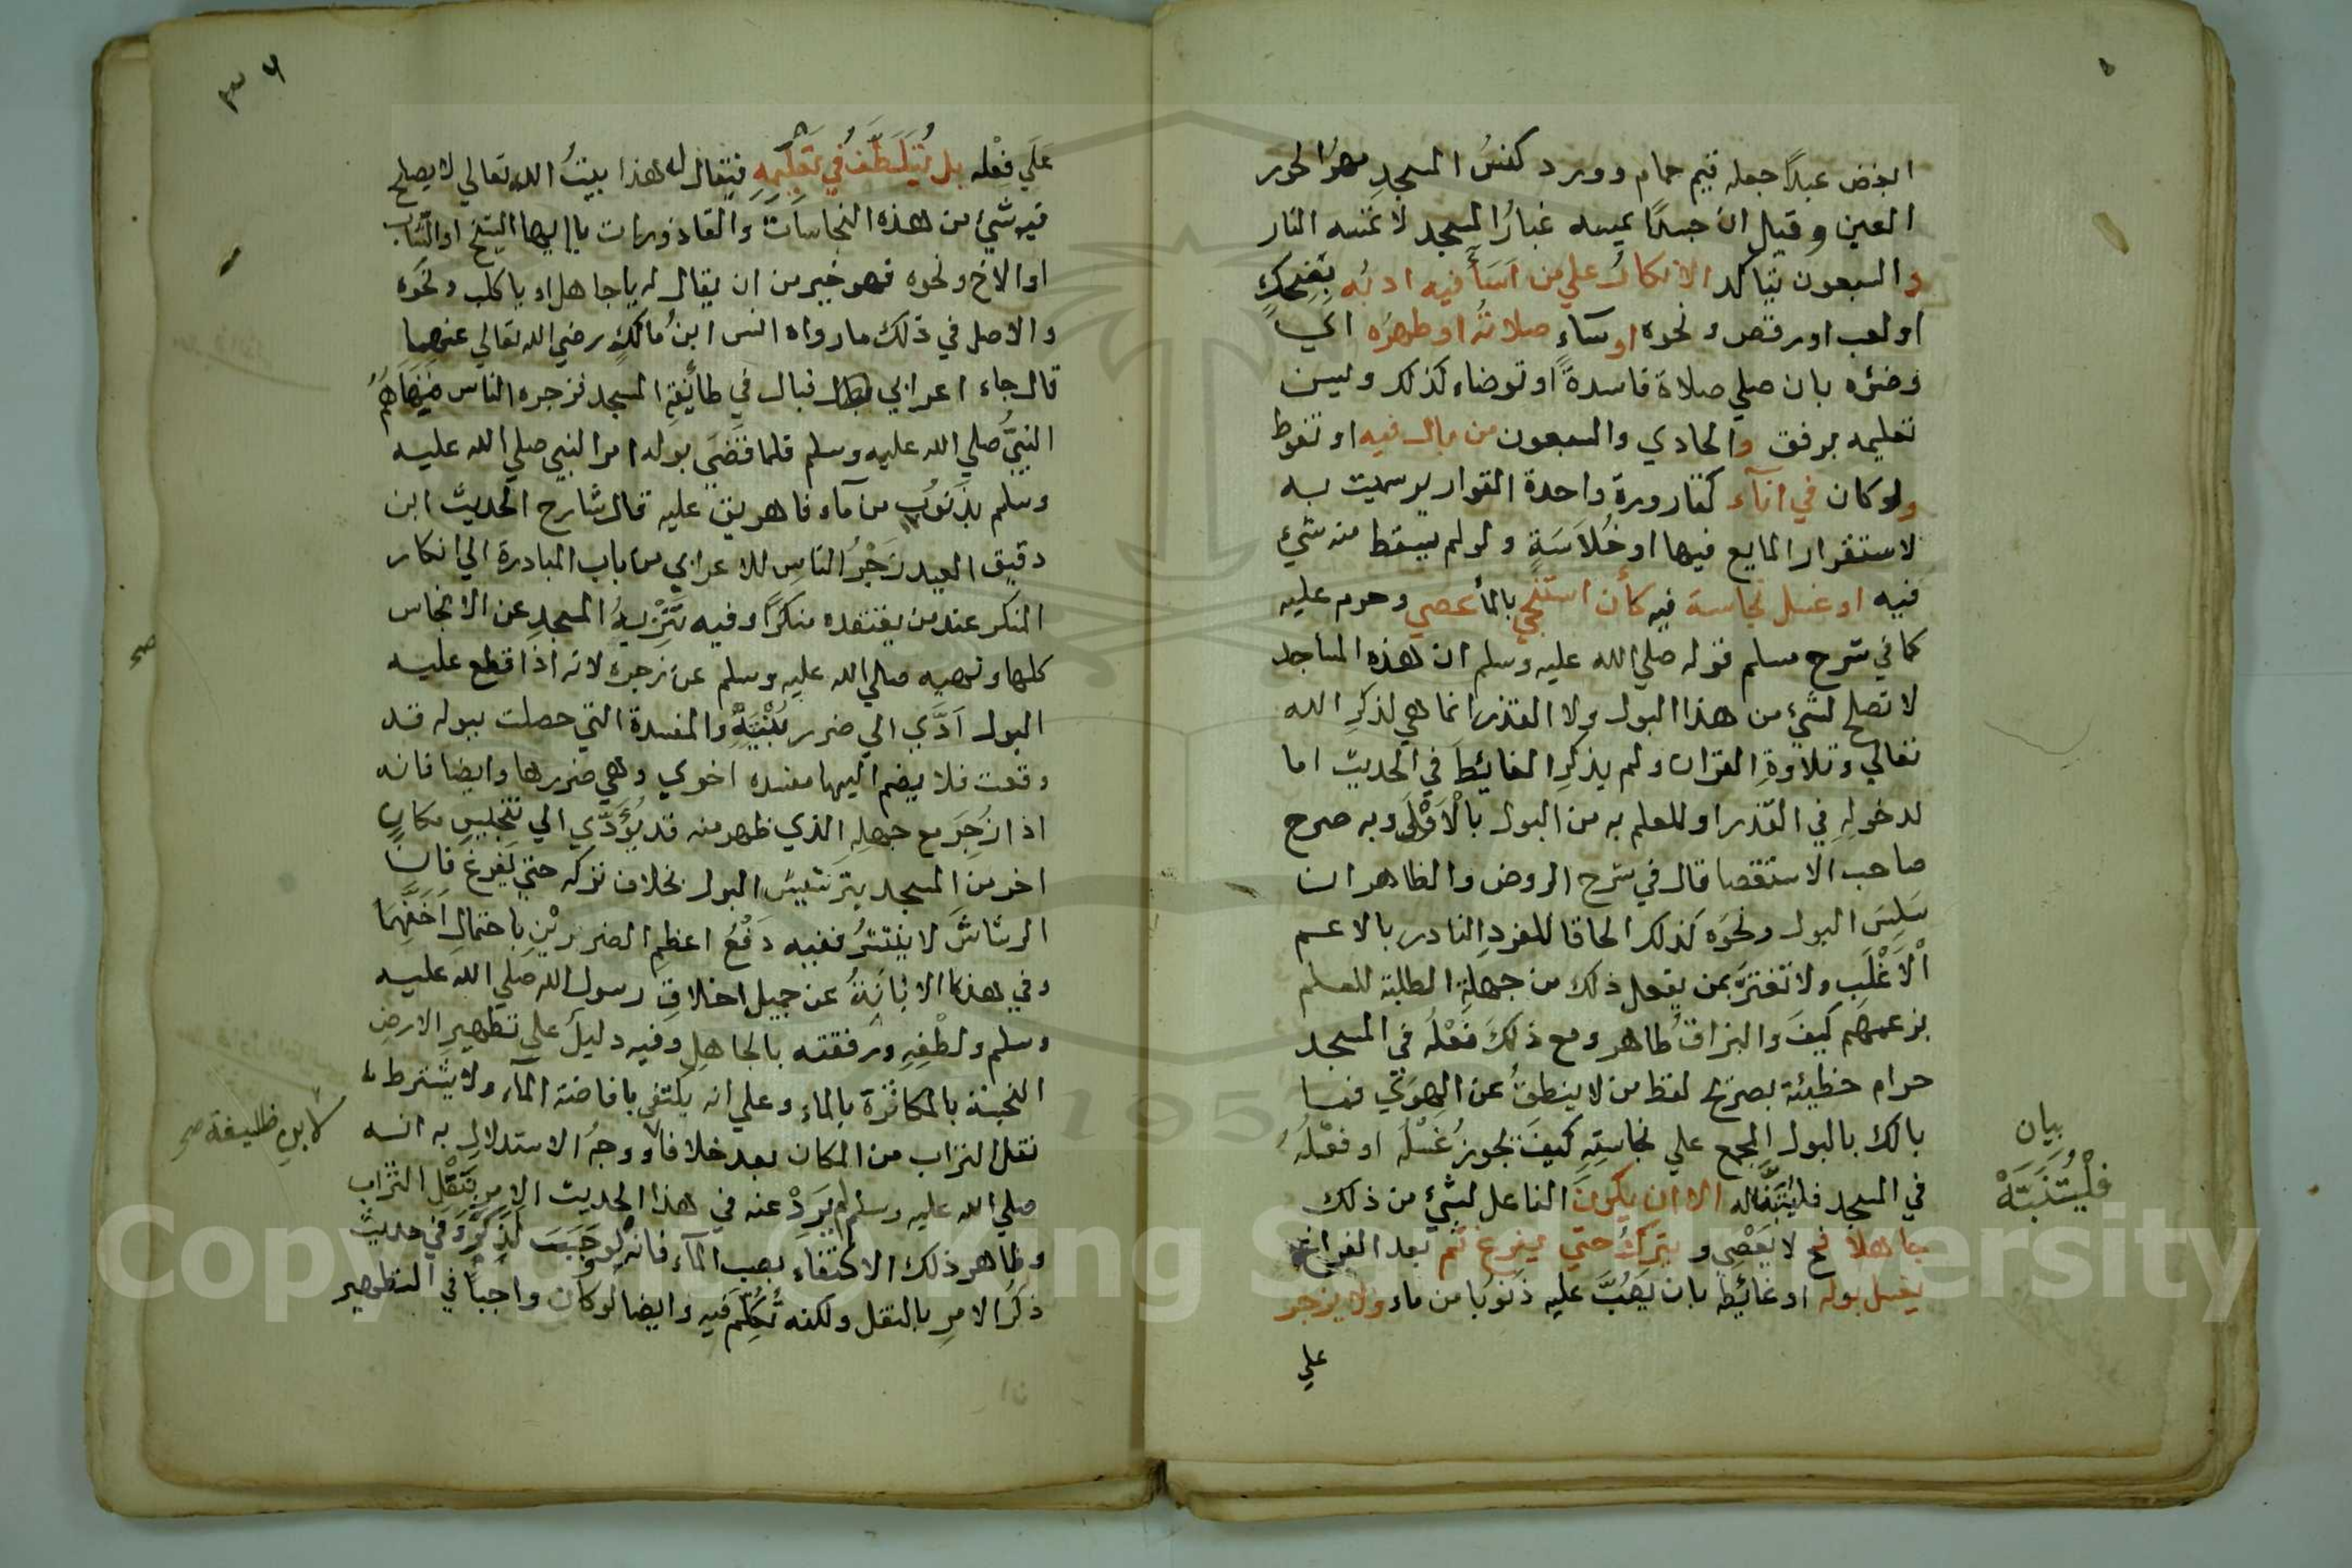 ابغض عبدًا جعله قيم حمام وورد كنسُ المسجدِ مهوُر الحور
العين وقيل ان جسدًا يمسه غبارُ المسجد لا تمسه النار
والسبعون يتاكد الانكارُ علي من اَسَأَ فيه ادبُه بِضِحكٍ
او لعب او رقص ونحوه او ساءٍ صلاتُه او طهرُه اي
وضئوه بان صلي صلاة فاسدةً او توضاء كذلك وليس
تعليمه برفق والحادي والسبعون من بال فيه او تغوط
ولو كان في انآء كقارورةٍ واحدة القوارير سميت به
لاستقرار المايع فيها او خُلاَسَةٍ ولو لم يسقط منه شيئ
فيه او غسل نجاسة فيه كأن استنجي بالمأ عصي وحرم عليه
كما في شرح مسلم قوله صلي الله عليه وسلم ان هذه المساجد
لا تصلح لشيئ من هذا البول ولا القذر انما هي لذكرِ الله
تعالي وتلاوةِ القران ولم يذكرِ الغائِطَ في الحديث اما
لدخولِهِ في القذر او للعلم به من البول بالْاَوْلَي وبه صرح
صاحب الاستقصا قال في شرح الروض والظاهر ان
سَلِسَ البول ونحوَه كذلك الحاقا للفردِ النادر بالاعم
الْاَغْلَبِ ولا تغترَّ بمن يفعل ذلك من جهلةِ الطلبة للعلم
بزعمهم كيفَ والبزاقُ طاهر ومع ذلكَ فعْلُه في المسجد
حرام خطيئة بصريح لفظ من لا ينطقُ عن الهوَي فما
بالك بالبول المجمع علي نجاستِهِ كيفَ يجوزُ غُسْلُه او فعْلُهُ
في المسجد فليُتَنَبَّه له الا ان يكونَ الفاعل لشيئ من ذلك
جاهلا فح لا يَعْصِي ويتركُ حتي يفرغ ثم بعد الفراغ
يغسل بوله او غائطه بان يَصُبَّ عليه ذَنوبًا من ماء ولا يزجر
علي
بيان
فلْيُتَنَبَّهْ
علَي فِعْله بل يُتَلَطَّفُ في تعْلِيمِهِ فيقال له هذا بيتُ الله تعالي لا يصلح
فيه شيئ من هذه النجاسات والقاذورات يا ايها الشيخ او الشاب
او الاخ ونحوه فهو خير من ان يقال له يا جاهل او يا كلب ونحوه
والاصل في ذلك ما رواه انس ابنُ مالكٍ رضي الله تعالي عنهما
قال جاء اعرابي فبال في طائفةِ المسجد فزجره الناس فنهاهُمُ
النبيُّ صلي الله عليه وسلم فلما قضَي بوله امر النبي صلي الله عليه
وسلم بِذَنوُبٍ من مآء فاهريق عليه قال شارح الحديث ابن
دقيق العيد زَجْرُ الناسِ للاعرابي من باب المبادرة الي انكار
المنكر عند من يعتقده منكرًا وفيه تَنْزيهُ المسجدِ عن الانجاس
كلها ونهيه صلي الله عليه وسلم عن زجره لانه اذا قطع عليه
البول اَدَّي الي ضرر بُنْيَتِهِ والمفسدة التي حصلت ببوله قد
وقعت فلا يضم اليها مفسده اخري وهي ضررها وايضا فانه
اذا زُجِرَ مع جهلِهِ الذي ظهر منه قد يُؤَدَّي الي تنجيسِ مكانٍ
اخر من المسجد بترشيش البول بخلاف تركه حتي يفرغ فان
الرشاشَ لا ينتشرُ ففيه دَفْعُ اعظمِ الضررَيْنِ باحتمالِ اَخَفِّهِمَا
وفي هذا الابانَةُ عن جميل اخلاقِ رسول الله صلي الله عليه
وسلم ولطْفِهِ ورفقته بالجاهلِ وفيه دليلٌ علي تطهير الارض
النجسة بالمكاثرة بالماء وعلي انه يكتفي بافاضة المآء ولا يشترط
نقل التراب من المكان بعد خلافا ووجهُ الاستدلالِ به انه
صلي الله عليه وسلم لم يَرِدْ عنه في هذا الحديث الامر بنَقْلِ التُراب
وظاهر ذلك الاكتفاء بصب المآء فانه لو وَجَبَ لَذُكِرَ وفي حديث
ذكرُ الامرِ بالنقل ولكنه تُكُلِّمَ فيه وايضا لو كان واجبا في التطهير
صح
صح
Copyright © King Saud University
195